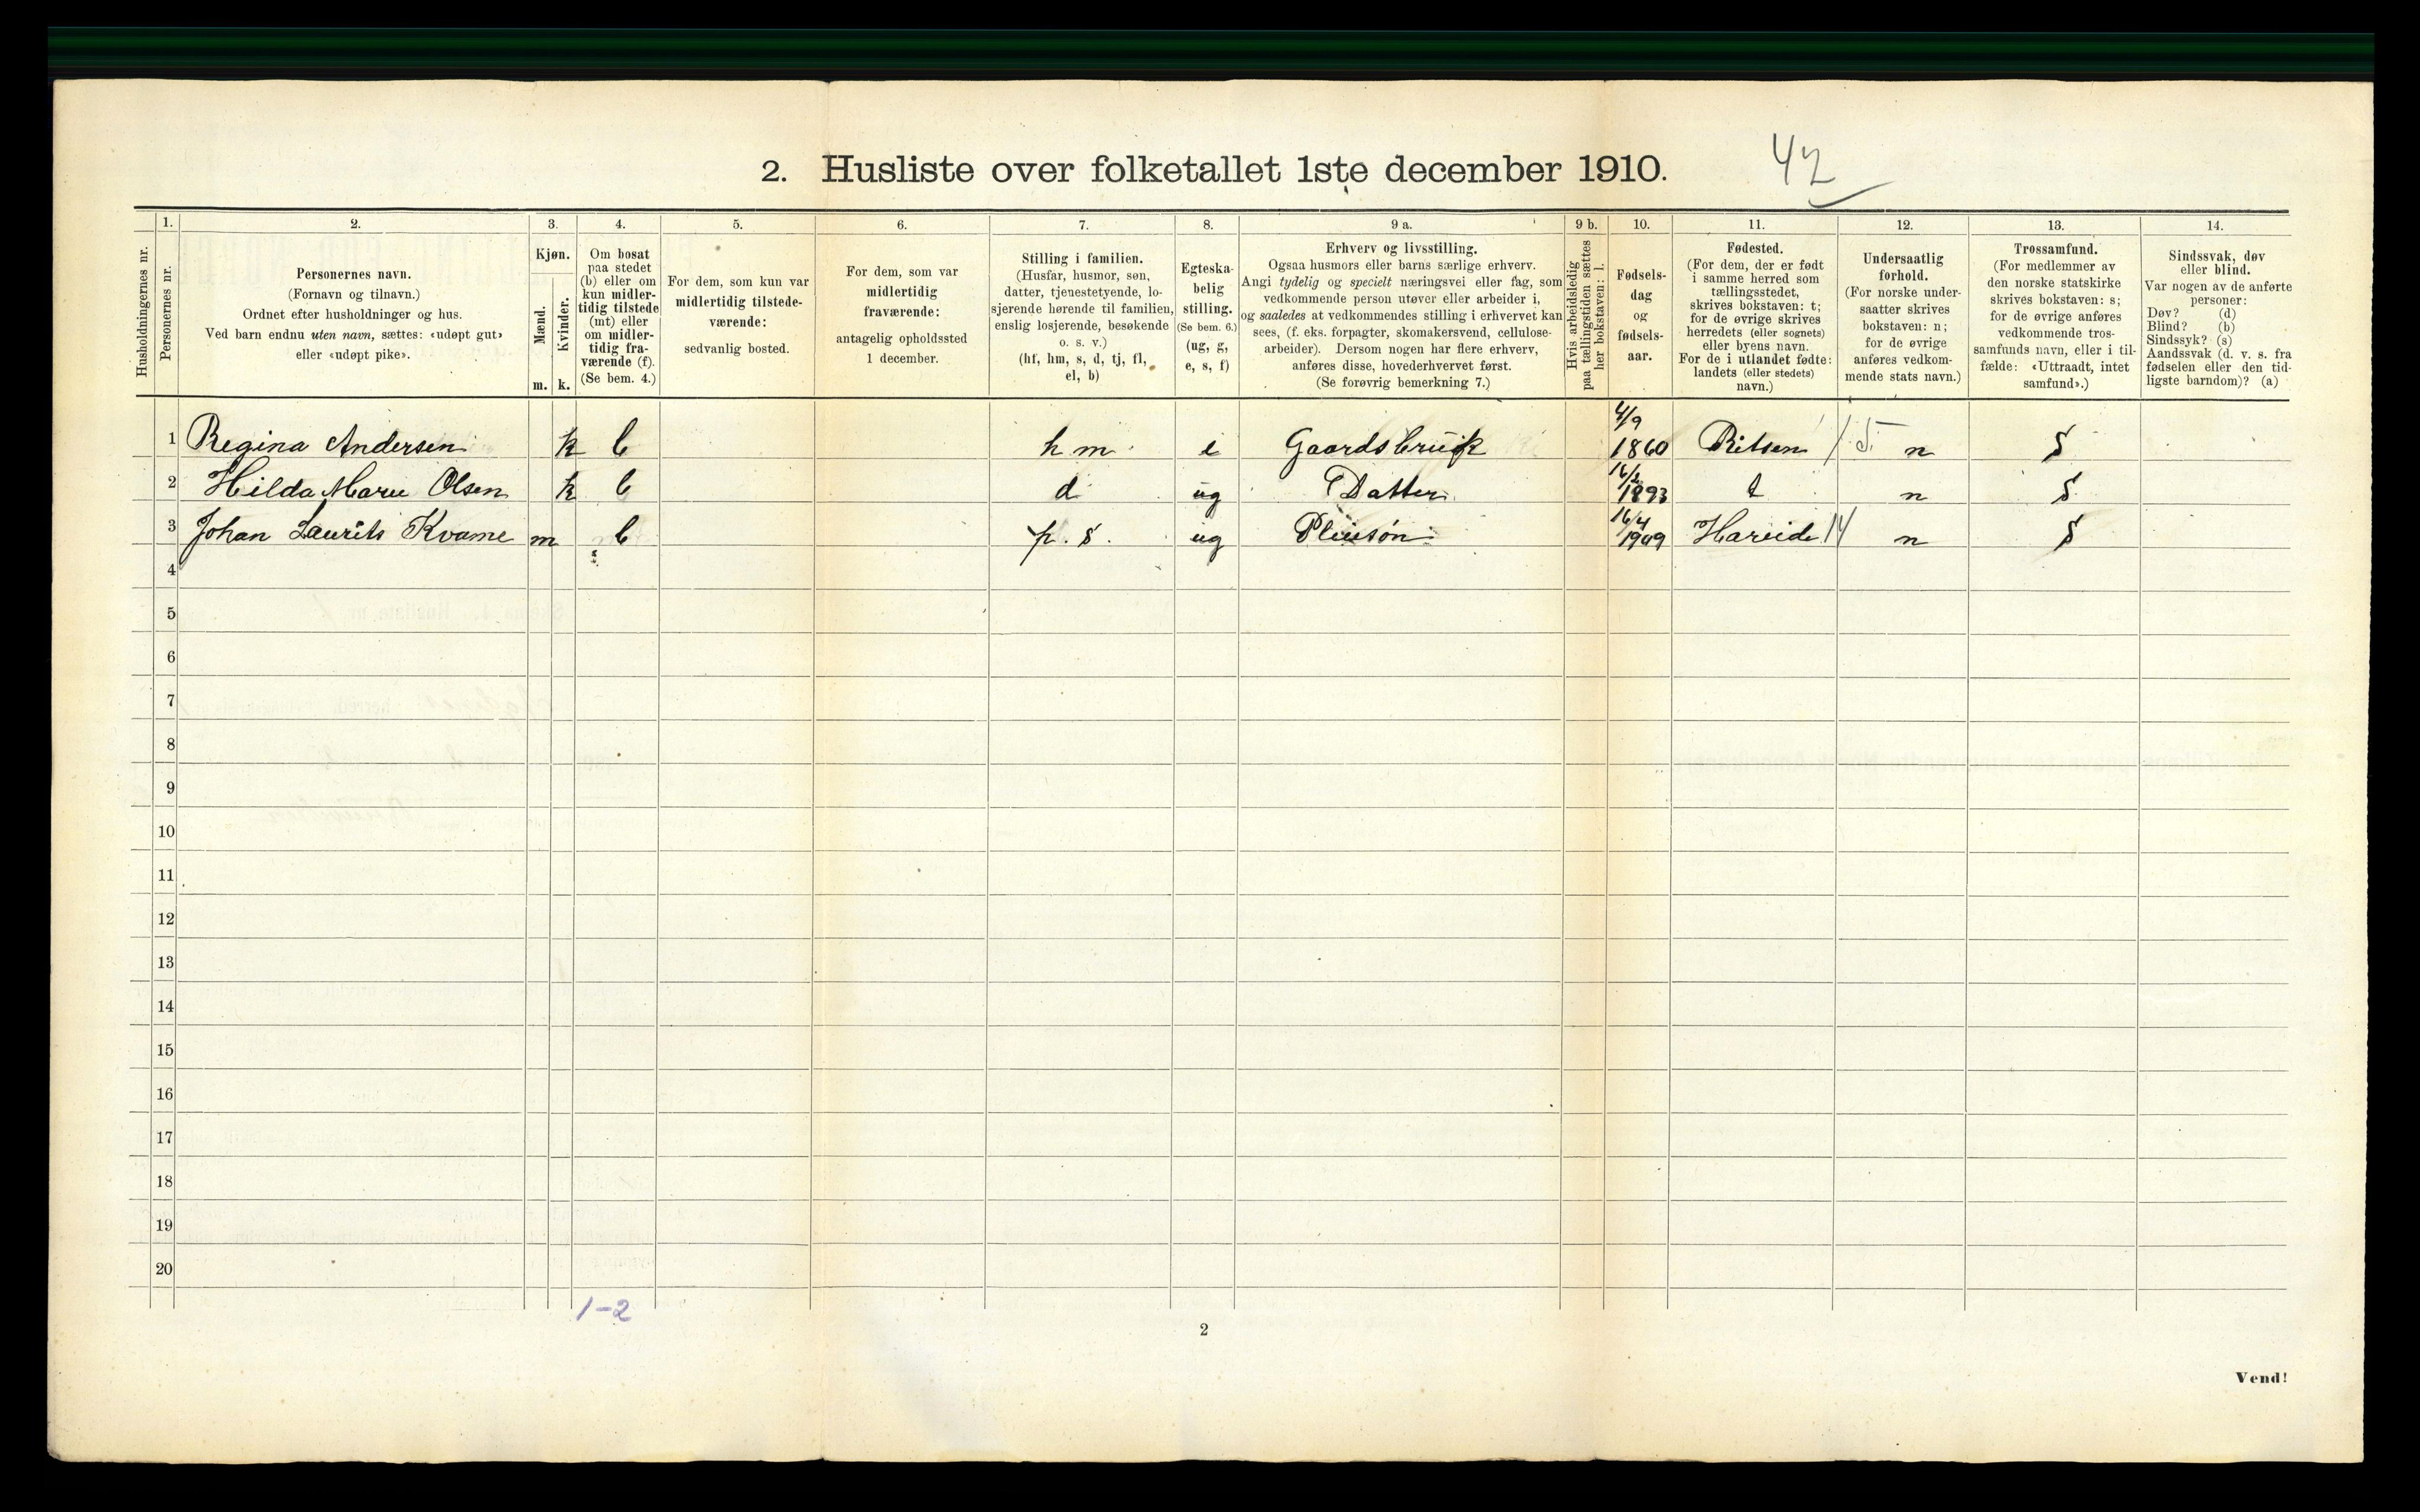 2. Husliste over folketallet 1ste december 1910.
42
Husholdningernes nr.
1.
Personernes nr.
2.
Personernes navn.
(Fornavn og tilnavn.)
Ordnet efter husholdninger og hus.
Ved barn endnu uten navn, sættes: «udøpt gut»
eller «udøpt pike».
3.
Kjøn.
Mænd.
Kvinder.
m. k.
4.
Om bosat
paa stedet
(b) eller om
kun midler-
tidig tilstede
(mt) eller
om midler-
tidig fra-
værende (f).
(Se bem. 4.)
5.
For dem, som kun var
midlertidig tilstede-
værende:
sedvanlig bosted.
6.
For dem, som var
midlertidig
fraværende:
antagelig opholdssted
1 december.
7.
Stilling i familien.
(Husfar, husmor, søn,
datter, tjenestetyende, lo-
sjerende hørende til familien,
enslig losjerende, besøkende
o. s. v.)
(hf, hm, s, d, tj, fl,
el, b)
8.
Egteska-
belig
stilling.
(Se bem. 6.)
(ug, g,
e, s, f)
9 a.
Erhverv og livsstilling.
Ogsaa husmors eller barns særlige erhverv.
Angi tydelig og specielt næringsvei eller fag, som
vedkommende person utøver eller arbeider i,
og saaledes at vedkommendes stilling i erhvervet kan
sees, (f. eks. forpagter, skomakersvend, cellulose-
arbeider). Dersom nogen har flere erhverv,
anføres disse, hovederhvervet først.
(Se forøvrig bemerkning 7.)
9 b.
Hvis arbeidsledig
paa tællingstiden sættes
her bokstaven: l.
10.
Fødsels-
dag
og
fødsels-
aar.
11.
Fødested.
(For dem, der er født
i samme herred som
tællingsstedet,
skrives bokstaven: t;
for de øvrige skrives
herredets (eller sognets)
eller byens navn.
For de i utlandet fødte:
landets (eller stedets)
navn.)
12.
Undersaatlig
forhold.
(For norske under-
saatter skrives
bokstaven: n;
for de øvrige
anføres vedkom-
mende stats navn.)
13.
Trossamfund.
(For medlemmer av
den norske statskirke
skrives bokstaven: s;
for de øvrige anføres
vedkommende tros-
samfunds navn, eller i til-
fælde: «Uttraadt, intet
samfund».)
14.
Sindssvak, døv
eller blind.
Var nogen av de anførte
personer:
Døv? (d)
Blind? (b)
Sindssyk? (s)
Aandssvak (d. v. s. fra
fødselen eller den tid-
ligste barndom)? (a)
1 Regina Andersen k b hm e Gaardsbruk 4/9 1860 n S
2 Hilda Marie Olsen k b d ug Datter 16/2 1893 t n S
3 Johan Laurits Kvame m b p. s. ug Pleiesøn 16/4 1909 Hareide 14 n S
4
5
6
7
8
9
10
11
12
13
14
15
16
17
18
19
20
1-2
2
Vend!